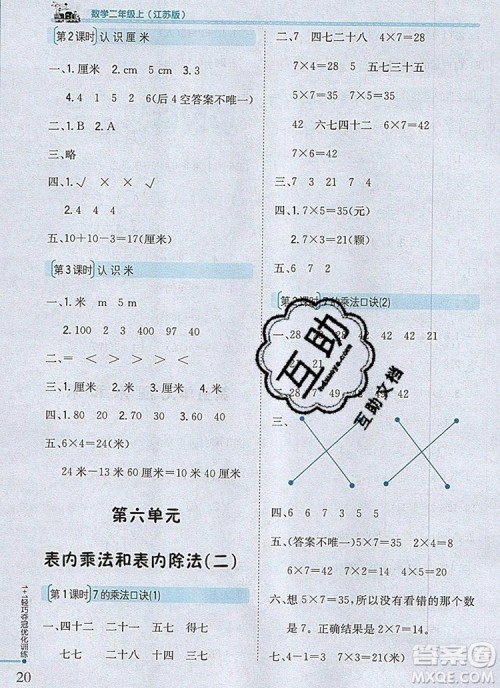 数学二年级上(江苏版)
第2课时 认识厘米
一、1.厘米 cm 2.cm 5cm 3.2
4.4 1 5 2 6(后4空答案不唯一)
二、1.B 2.A
三、略
四、1.✓ ✓ ✓
2.4 4 4
五、10+10-3=17(厘米)
第3课时 认识米
一、1.米 m 5m
2.100 400 2 300 2
二、= < > < >
三、40 20 5 20
四、1.80 20 2.30 3.60
五、6×4=24(米)
24米-10米-10米=4米
第六单元
表内乘法和表内除法(二)
第1课时 7的乘法口诀(1)
一、四十二 二十一 五 得七
七七 二七十四 二十八
二、7 四七二十八 4×7=28
7×4=28 五七三十五
5×7=35 7×5=35
42 六七四十二 6×7=42
7×6=42
三、7 35 28 7 4
四、1.7×5=35(元)
2.7×3=21(颗)
五、6 7 2
7的乘法口诀(2)
一、28 42 42 21
21
49 42
三、
四、35 7 3 7 5
五、5×7=35 7×5=35
六、想:少加了一个7,所以错误的
正确结果:28+7=35。
1+1轻巧夺冠优化训练
20
互助
互助文档
答案圈
MXQE.COM